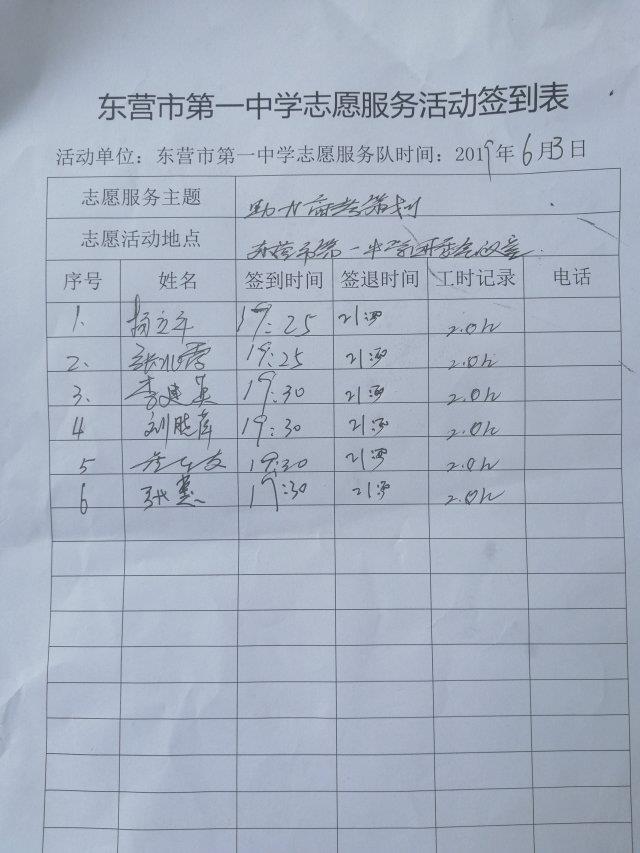 东营市第一中学志愿服务活动签到表
活动单位：东营市第一中学志愿服务队时间：2019年6月3日
志愿服务主题 助力高考策划
志愿活动地点 东营市第一中学团委会议室
序号 姓名 签到时间 签退时间 工时记录 电话
1. 杨立军 19:25 2.0h
2. 19:25 2.0h
3. 李建英 19:30 2.0h
4 刘晓萍 19:30 2.0h
5 19:30 2.0h
6 张慧 19:30 2.0h